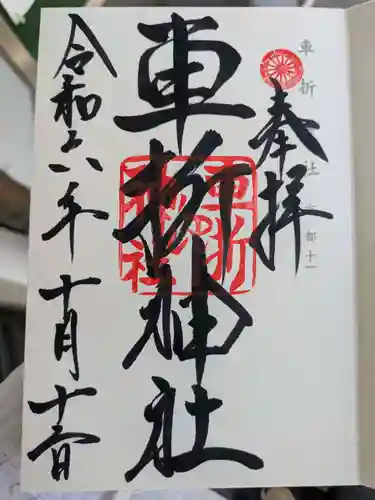 奉拝
車折神社
令和六年十月十三日
車折
社
都十一